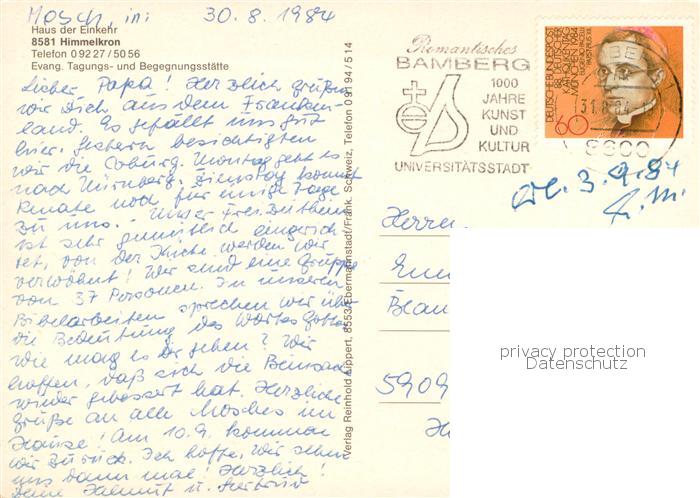 Mosch, in: 30.8.1984
Haus der Einkehr
8581 Himmelkron
Telefon 0 92 27 / 50 56
Evang. Tagungs- und Begegnungsstätte
Lieber Papa! Herzlich grüßen
wir Dich aus dem Franken-
land. Es gefällt uns gut
hier. Gestern besichtigten
wir die Coburg. Montag geht es
nach Nürnberg. Dienstag kommt
Renate noch für einige Tage
zu uns. Unser Freizeitheim
ist sehr gemütlich eingerich
tet, von der Küche werden wir
verwöhnt! Wir sind eine Gruppe
von 37 Personen. In unseren
Bibelarbeiten sprechen wir über
die Bedeutung des Wortes Gottes
Wie mag es Dir gehen? Wir
hoffen, daß sich die
wieder gebessert hat. Herzliche
Grüße an alle Mosches im
Hause! Am 10.9. kommen
wir zurück. Ich hoffe, wir sehen
uns dann mal! Herzlich!
Deine Helmut u.
Verlag Reinhold Lippert, 8553 Ebermannstadt/Fränk. Schweiz, Telefon 0 91 94 / 5 14
Romantisches
BAMBERG
1000
JAHRE
KUNST
UND
KULTUR
UNIVERSITÄTSSTADT
DEUTSCHE BUNDESPOST
88. DEUTSCHER
KATHOLIKENTAG
MÜNCHEN 1984
EUGENIO PACELLI
PAPST PIUS XII.
60
31.8.84
8600
3.9.84
Herrn
5909
privacy protection
Datenschutz